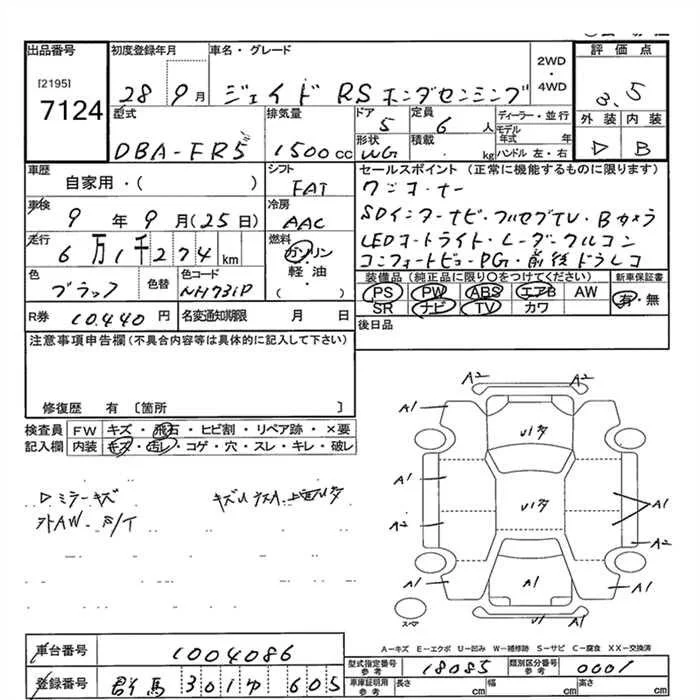 出品番号 初度登録年月 車名・グレード 2WD・4WD 評価点
[2195]
7124 28 9月 ジェイド RS ホンダセンシング 3.5
型式 排気量 ドア 定員 ディーラー・並行 外装 内装
DBA-FR5 1500cc 5 6人 モデル年式 年
形状 積載 kg ハンドル 左・右 B
WG
車歴 シフト セールスポイント (正常に機能するものに限ります)
自家用・( ) FAT ワンオーナー
車検 冷房 SDインターナビ・フルセグTV・Bカメラ
9年9月(25日) AAC LEDオートライト・レーダークルコン
走行 燃料 コンフォートビューPG・前後ドラレコ
6万1千274km ガソリン・軽油・( )
色 色替 色コード 装備品 (純正品に限り○をつけてください) 新車保証書
ブラック NH731P PS PW ABS エアB AW 有・無
SR ナビ TV カワ
R券 10,440円 名変通知期限 月 日 後日品
注意事項申告欄(不具合内容等は具体的に記入して下さい)
修復歴 有 〔箇所 〕
検査員 FW キズ・飛石・ヒビ割・リペア跡・×要
記入欄 内装 キズ・汚レ・コゲ・穴・スレ・キレ・破レ
ミラーキズ
外AW
A2 A2
A1 A1
A1 A1
A2 A2
A1 A1 A1
スペア
A-キズ E-エクボ U-凹み W-補修跡 S-サビ C-腐食 XX-交換済
車台番号 1004086
型式指定番号 参考 18085 類別区分番号 参考 0001
登録番号 群馬 301 ゆ 605
車庫証明用 参考 長さ cm 幅 cm 高さ cm